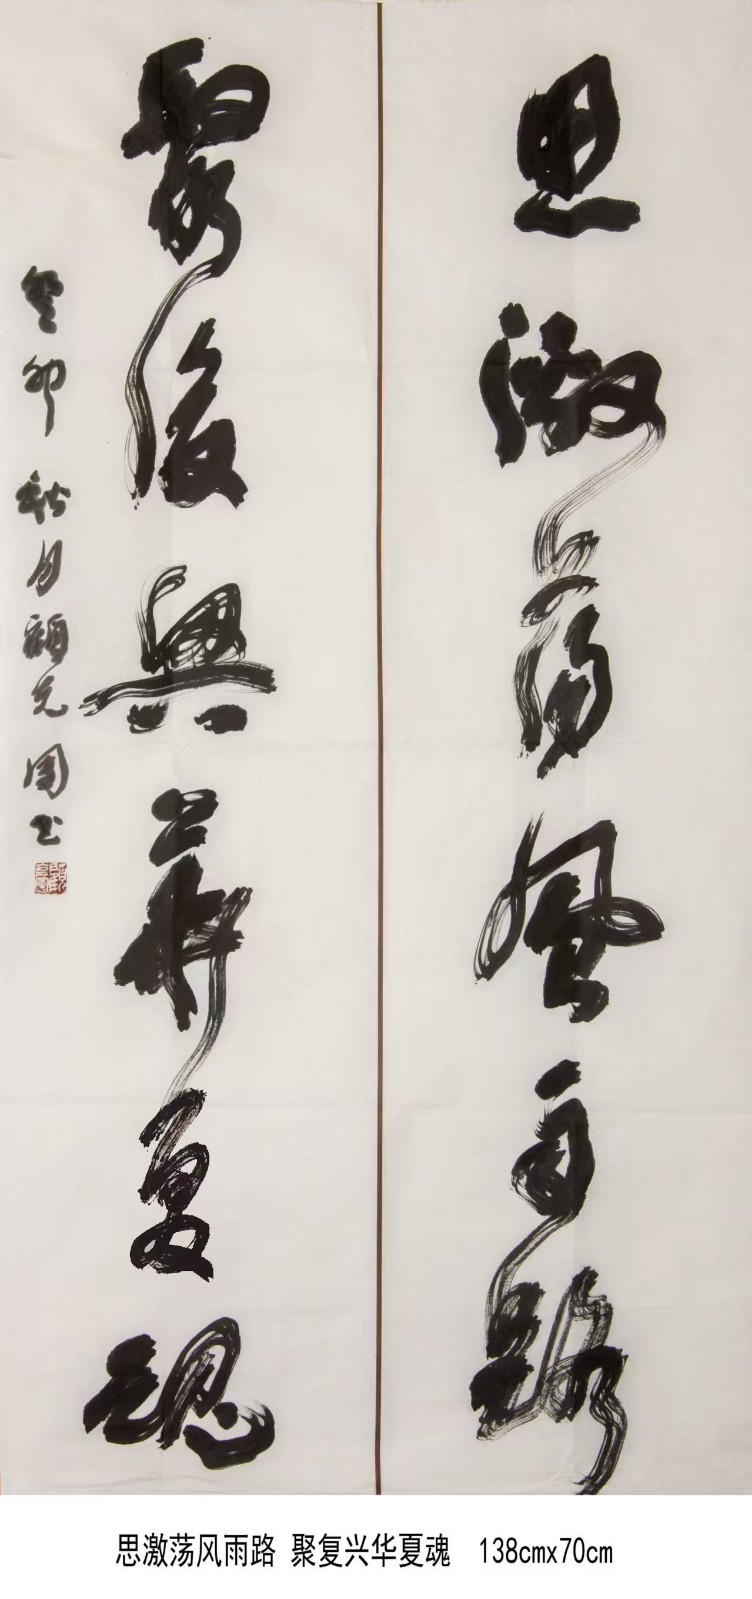 思激荡风雨路
聚復興華夏魂
癸卯秋月顧元圖书
思激荡风雨路 聚复兴华夏魂 138cmx70cm